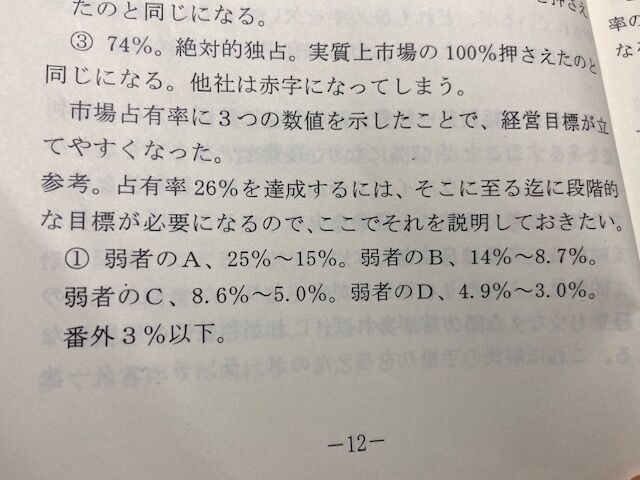 たのと同じになる。
③ 74%。絶対的独占。実質上市場の100%押さえたのと
同じになる。他社は赤字になってしまう。
市場占有率に3つの数値を示したことで、経営目標が立
てやすくなった。
参考。占有率26%を達成するには、そこに至る迄に段階的
な目標が必要になるので、ここでそれを説明しておきたい。
① 弱者のA、25%〜15%。弱者のB、14%〜8.7%。
弱者のC、8.6%〜5.0%。弱者のD、4.9%〜3.0%。
番外3%以下。
-12-